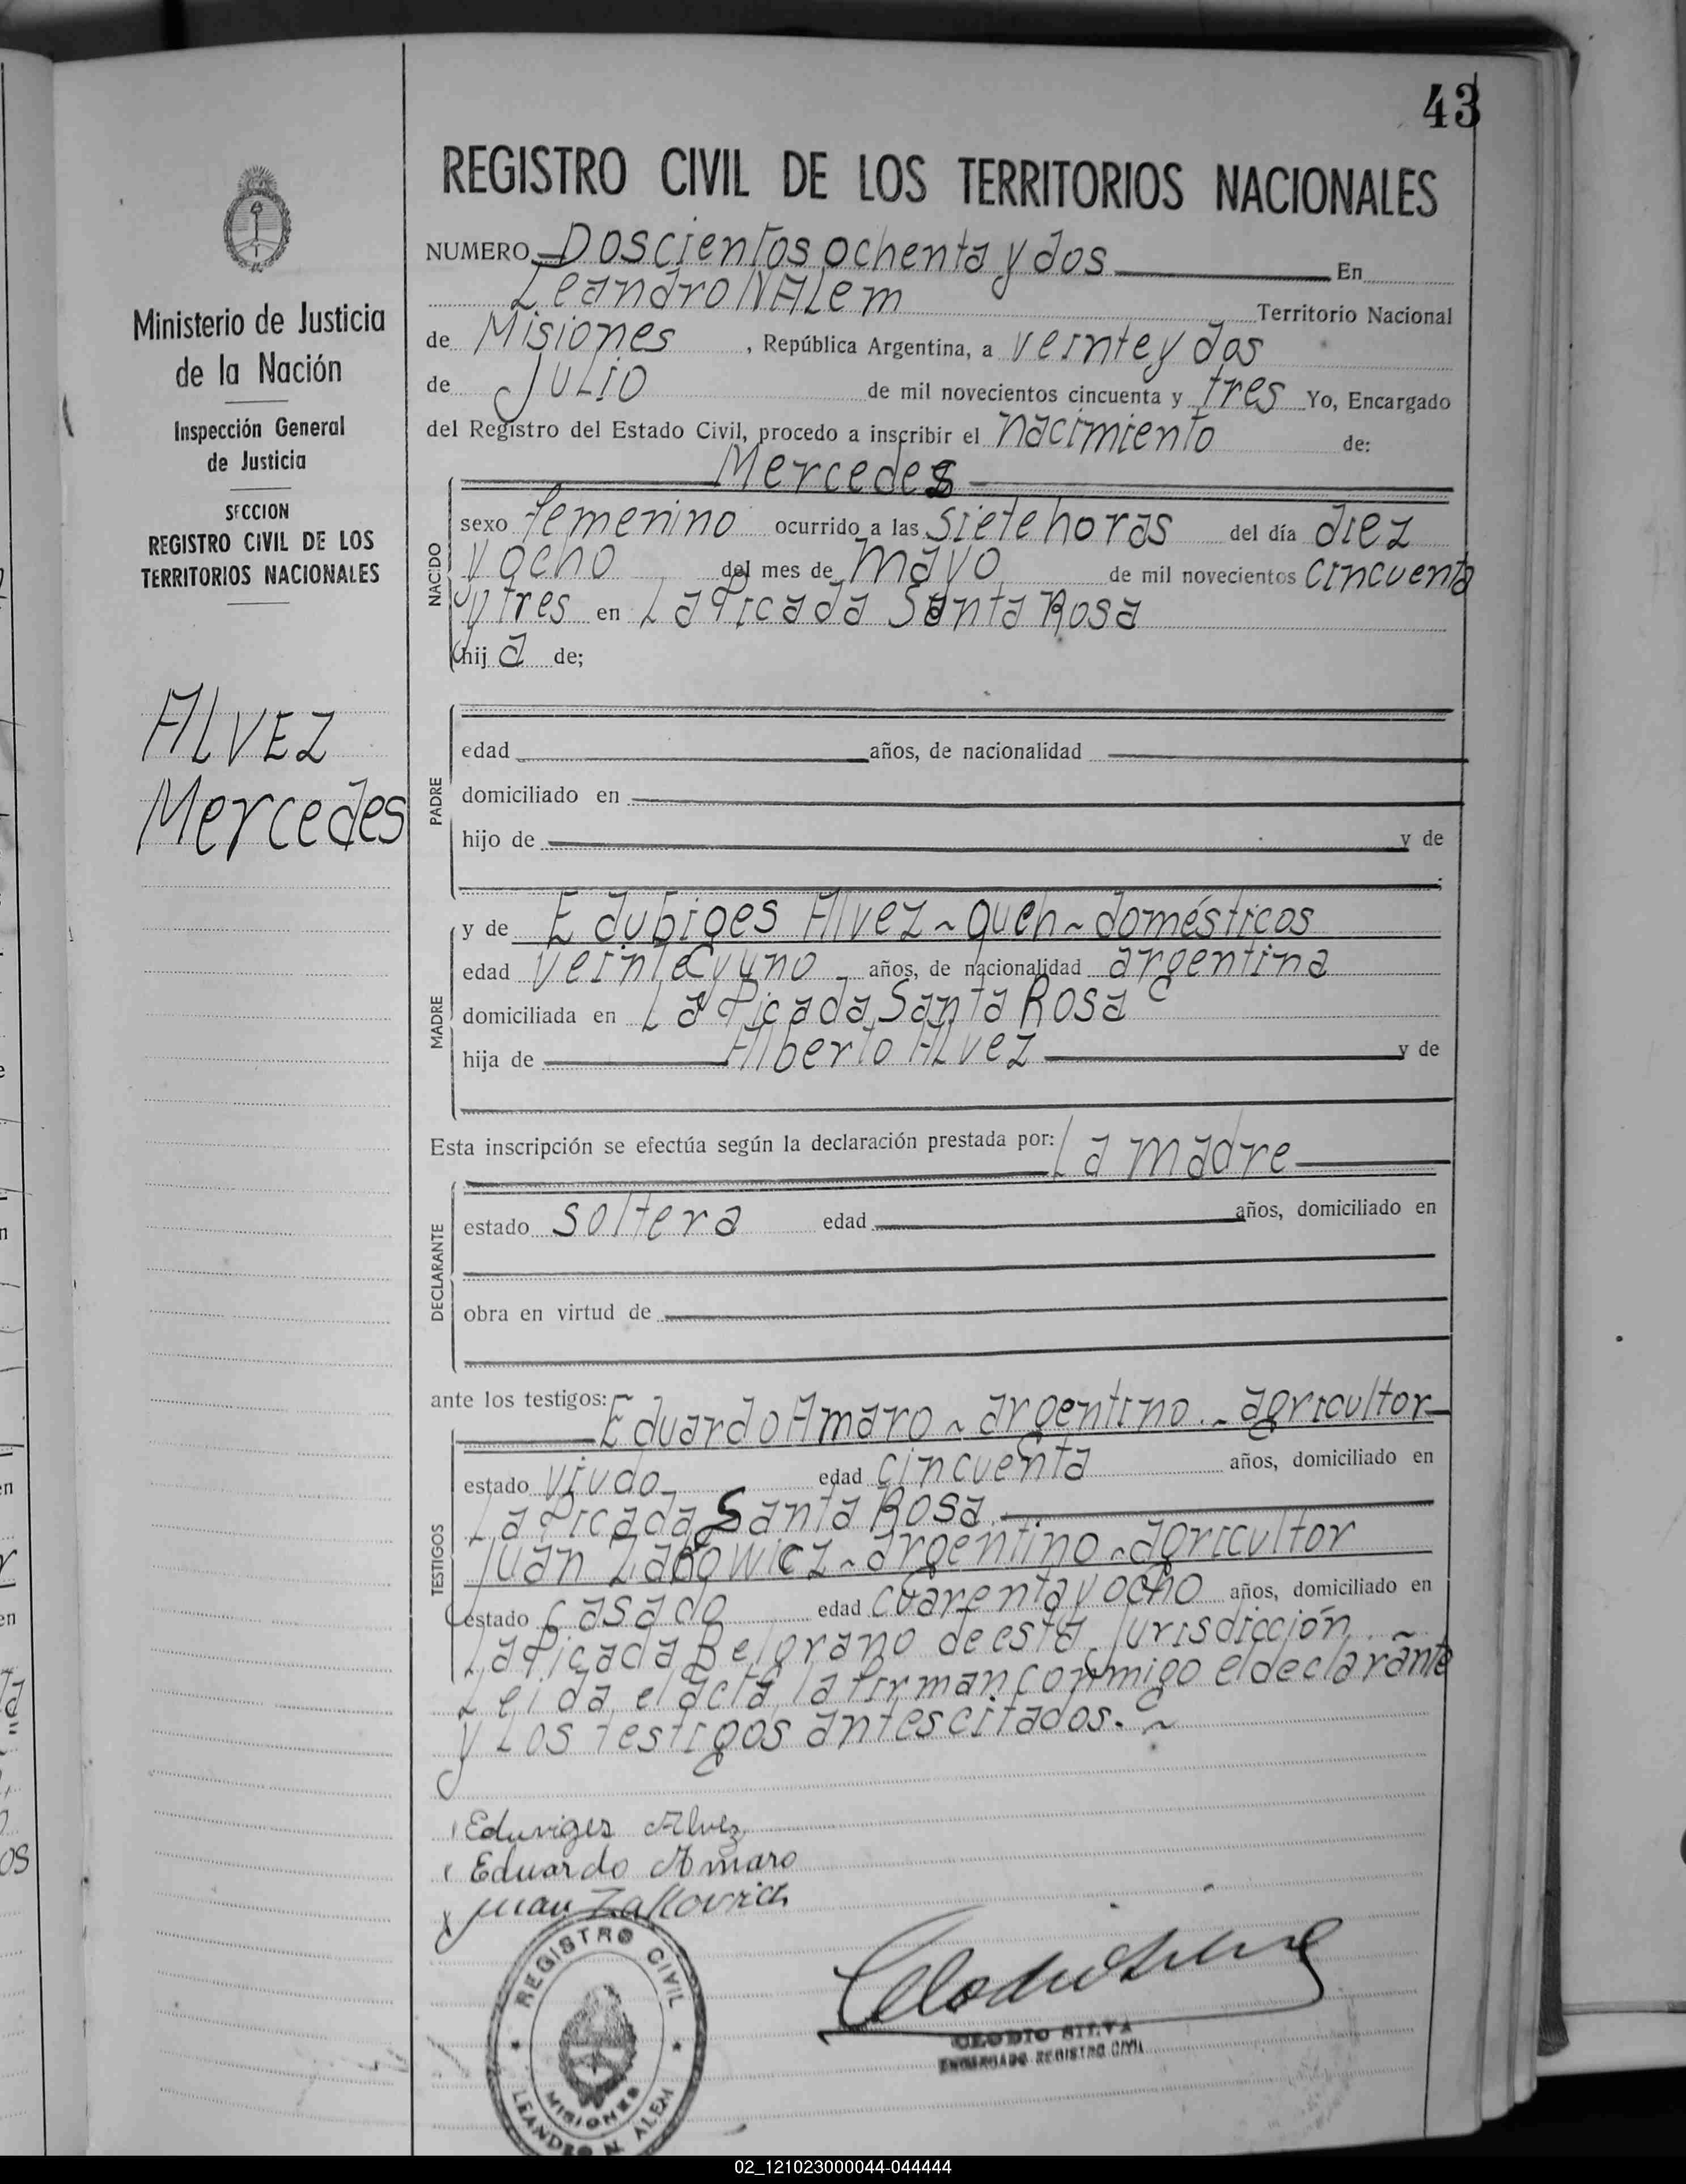 43
REGISTRO CIVIL DE LOS TERRITORIOS NACIONALES
NUMERO Doscientos ochenta y dos En
Leandro N Alem Territorio Nacional
de Misiones , República Argentina, a veinte y dos
de Julio de mil novecientos cincuenta y tres Yo, Encargado
del Registro del Estado Civil, procedo a inscribir el nacimiento de:
Mercedes
NACIDO
sexo femenino ocurrido a las siete horas del día diez
y ocho del mes de mayo de mil novecientos cincuenta
y tres en La Picada Santa Rosa
hij a de;
Ministerio de Justicia
de la Nación
Inspección General
de Justicia
SECCION
REGISTRO CIVIL DE LOS
TERRITORIOS NACIONALES
ALVEZ
Mercedes
PADRE
edad años, de nacionalidad
domiciliado en
hijo de y de
MADRE
y de Edubiges Alvez ~ queh ~ domésticos
edad veinte y uno años, de nacionalidad argentina
domiciliada en La Picada Santa Rosa
hija de Alberto Alvez y de
Esta inscripción se efectúa según la declaración prestada por: La madre
DECLARANTE
estado soltera edad años, domiciliado en
obra en virtud de
ante los testigos:
Eduardo Amaro ~ argentino. ~ agricultor
TESTIGOS
estado viudo edad cincuenta años, domiciliado en
La Picada Santa Rosa
Juan ~ argentino ~ agricultor
estado casado edad cuarenta y ocho años, domiciliado en
La Picada Belgrano de esta Jurisdicción
Leida el acta, la firman conmigo el declarante
y los testigos antes citados. ~
Eduviges Alvez
Eduardo Amaro
Juan
REGISTRO CIVIL
MISIONES
LEANDRO N. ALEM
CLODIO SILVA
ENCARGADO REGISTRO CIVIL
02_121023000044-044444